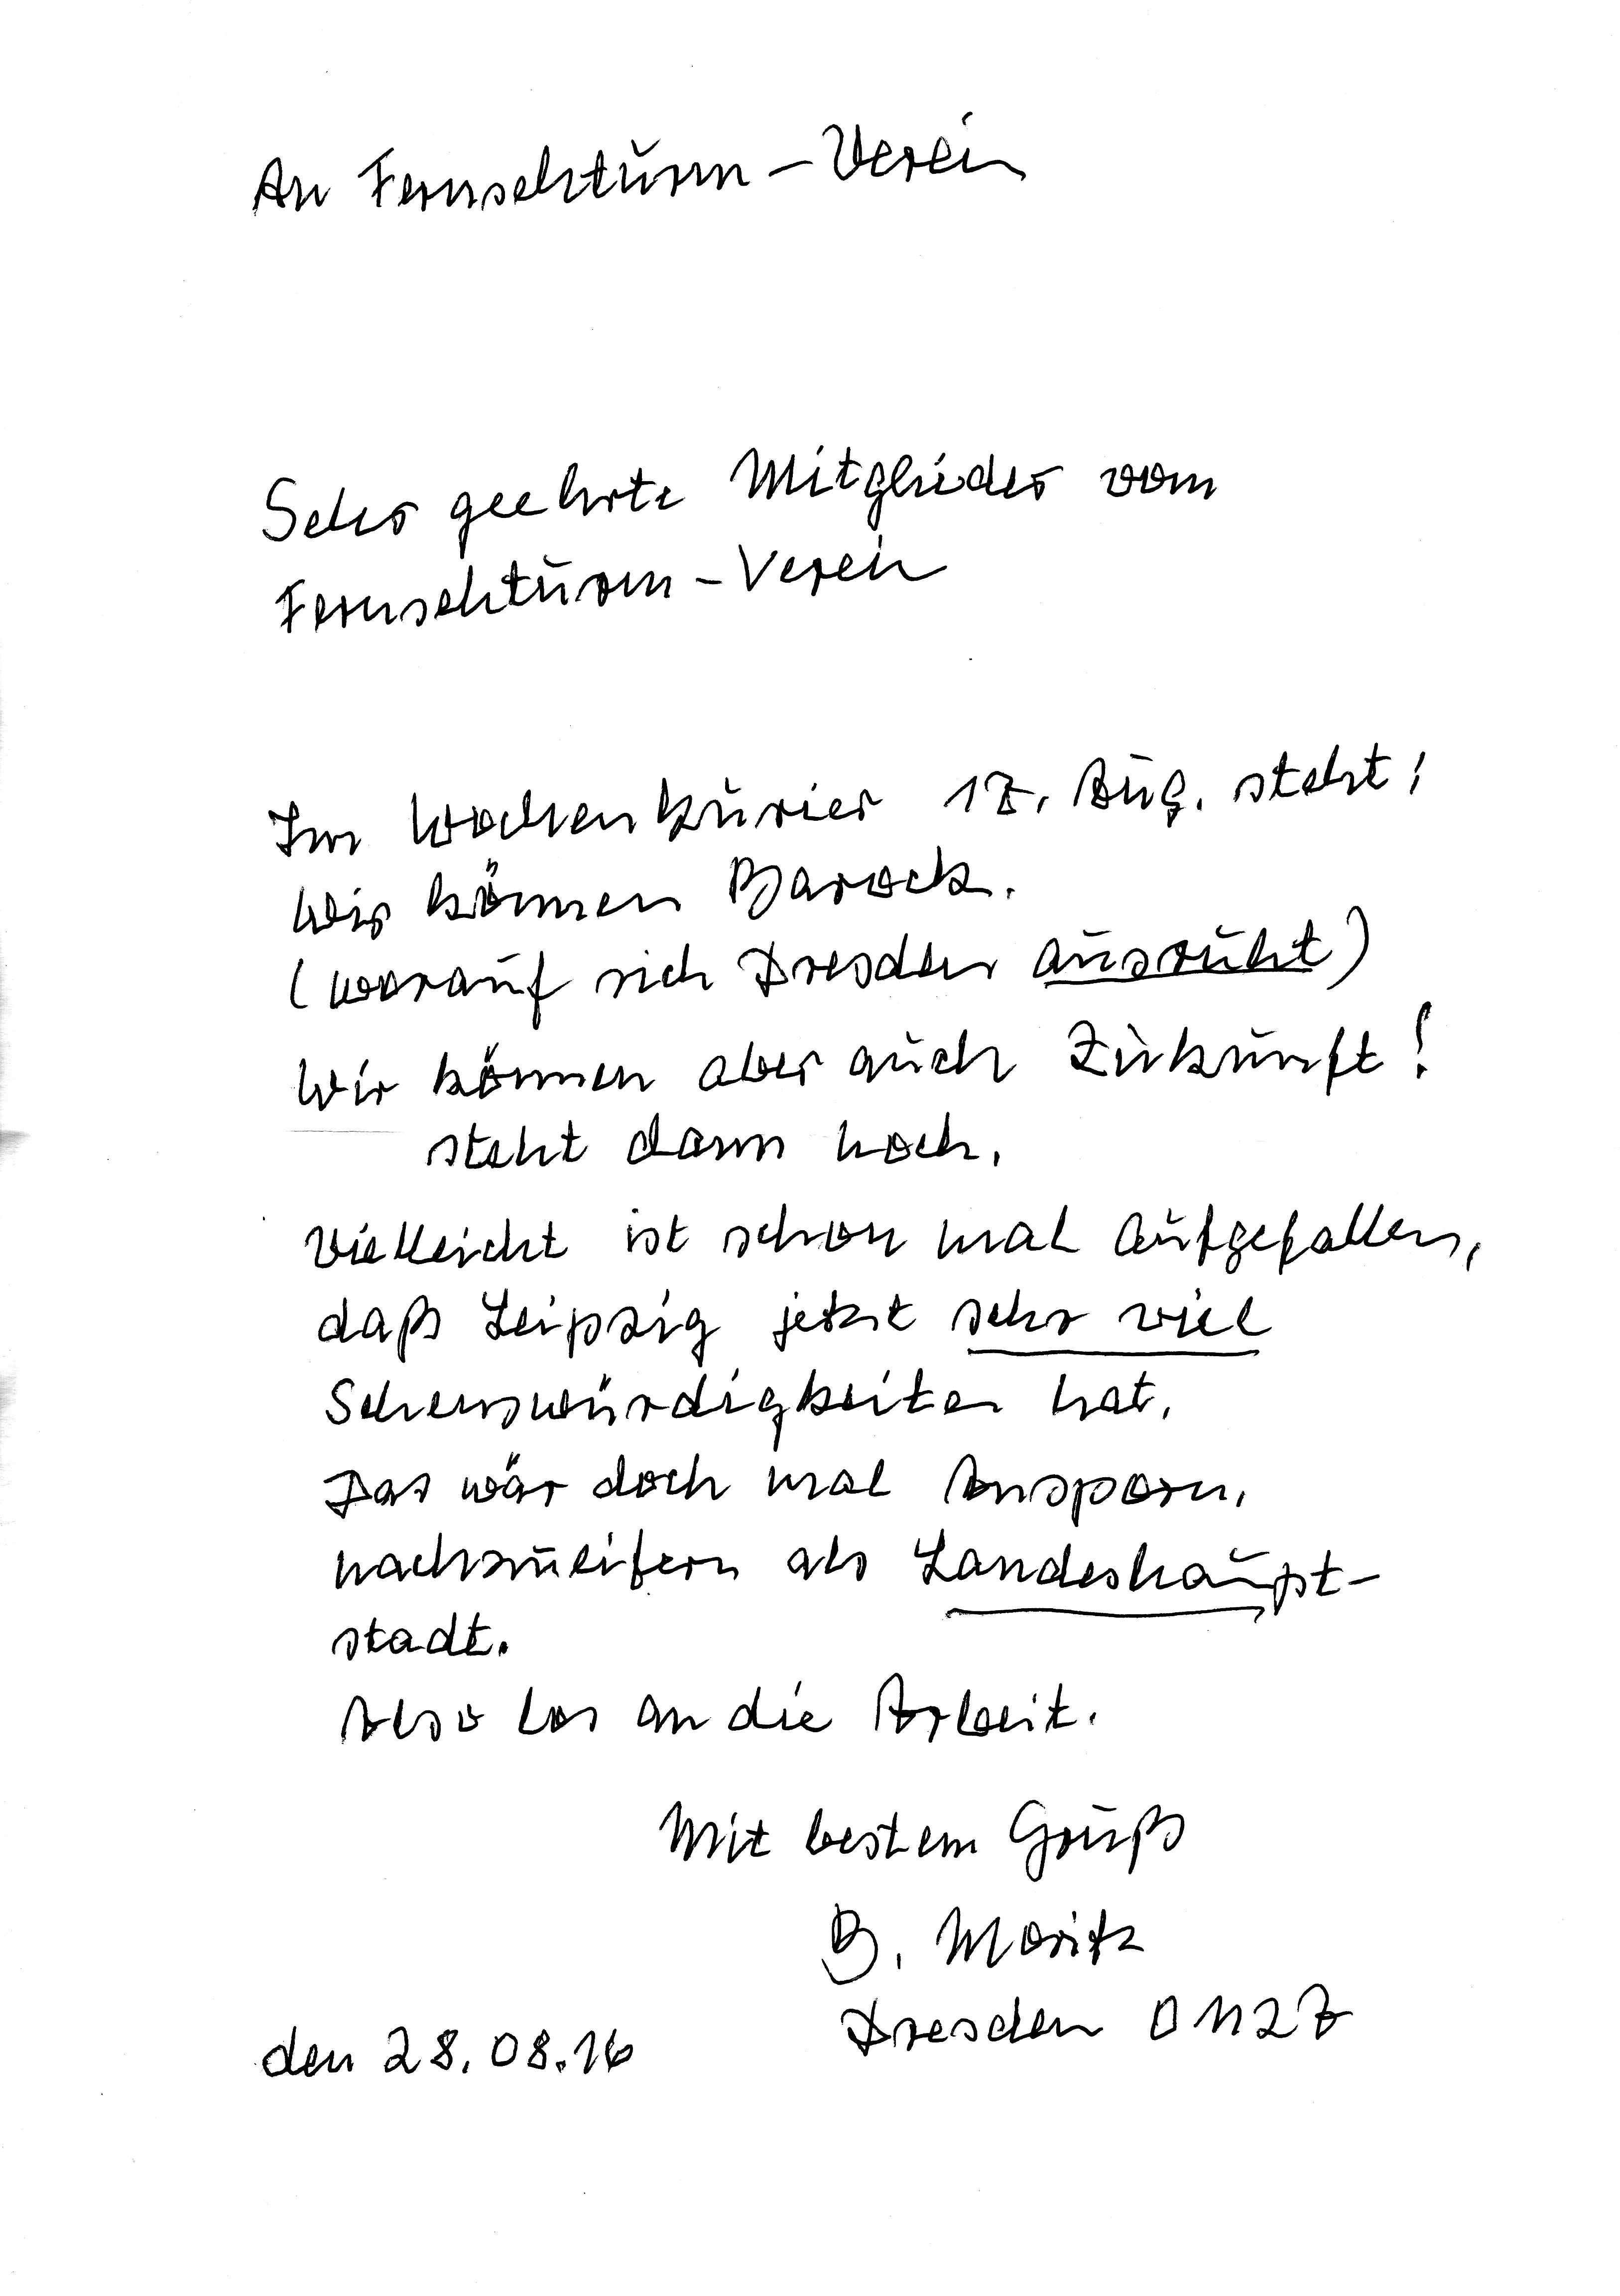 An Fernsehturm-Verein
Sehr geehrte Mitglieder vom
Fernsehturm-Verein
Im Wochenkurier 17. Aug. steht:
Wir können Barock.
(worauf sich Dresden ausruht)
Wir können aber auch Zukunft!
steht dann noch.
Vielleicht ist schon mal aufgefallen,
daß Leipzig jetzt sehr viel
Sehenswürdigkeiten hat.
Das wär doch mal Ansporn,
nachzueifern als Landeshaupt-
stadt.
Also los an die Arbeit.
Mit bestem Gruß
B. Moritz
Dresden 01127
den 28.08.16